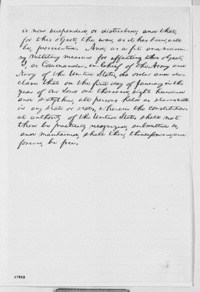 is now suspended, or disturbed; and that
for this object, the war, as it has been, will
be, prossecuted. And, as a fit and neces-
sary military measure for effecting this object,
I, as Commander-in-Chief of the Army and
Navy of the United States, do order and de-
clare that on the first day of January in the
year of our Lord one thousand, eight hundred
and sixty three, all persons held as slaves with-
in any state or states, wherein the constitution-
al authority of the United States shall not
then be practically recognized, submitted to,
and maintained, shall then, thenceforward, and
forever, be free.